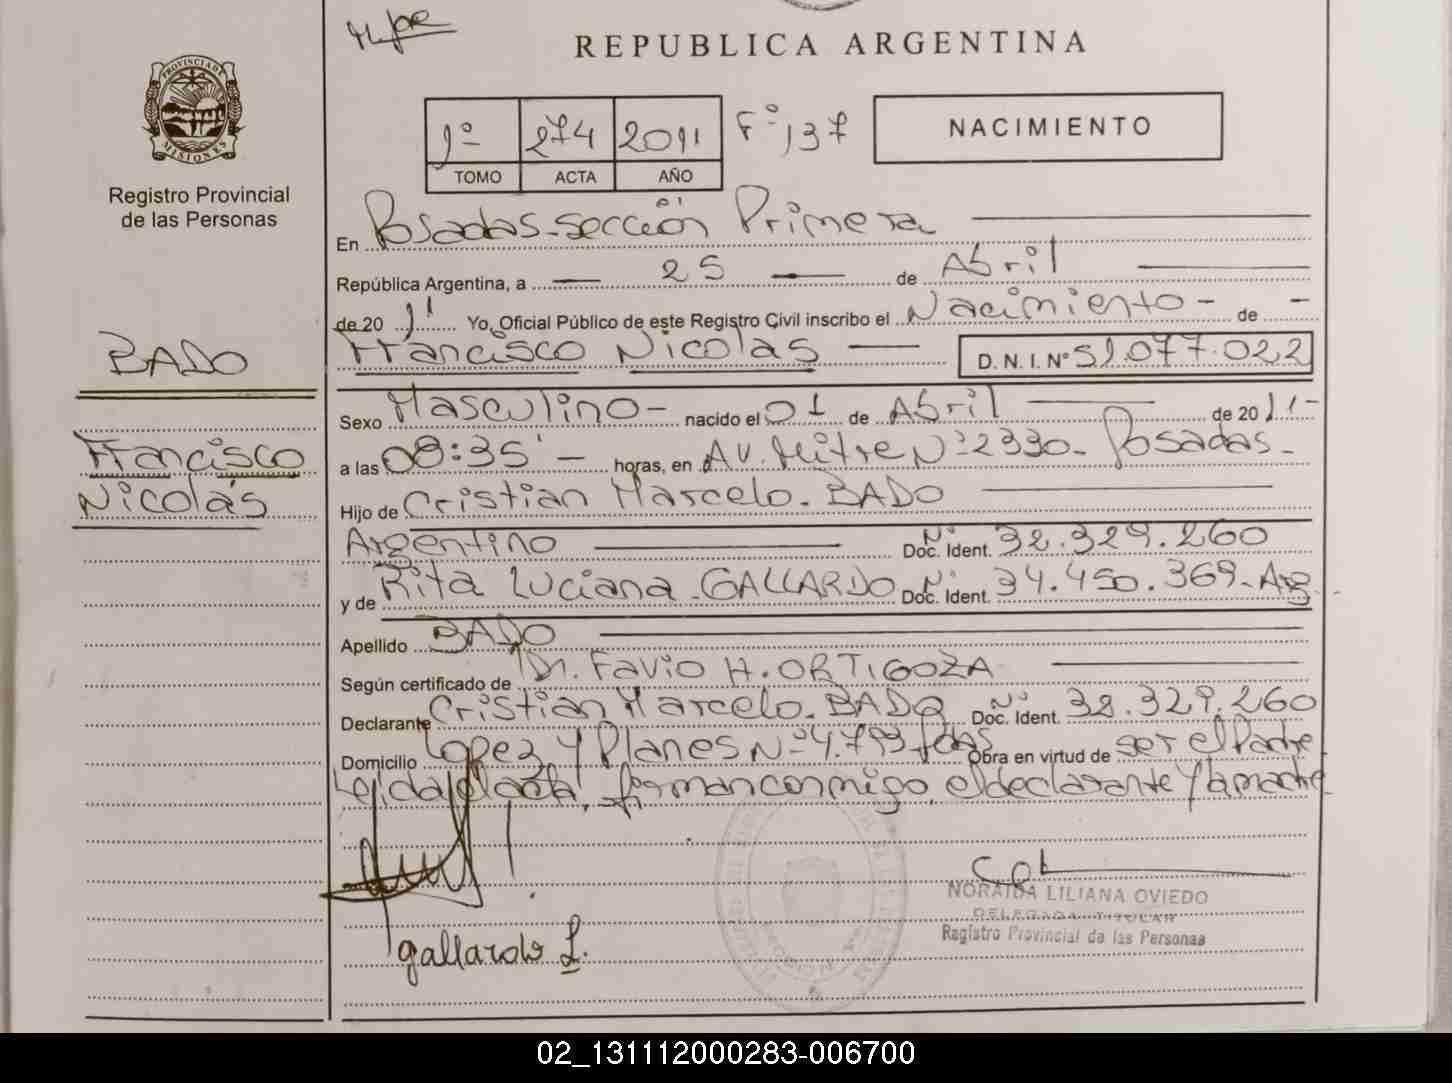 REPUBLICA ARGENTINA
PROVINCIA DE
MISIONES
Registro Provincial
de las Personas
1º 274 2011 Fº 137
TOMO ACTA AÑO
NACIMIENTO
En Posadas-sección Primera
República Argentina, a 25 de Abril
de 20 11 Yo, Oficial Público de este Registro Civil inscribo el Nacimiento - de -
Francisco Nicolás D. N. I. Nº 51.077.022
BADO
Francisco
Nicolás
Sexo Masculino - nacido el 01 de Abril de 20 11-
a las 08:35' - horas, en Av. Mitre Nº 2330- Posadas-
Hijo de Cristian Marcelo. BADO
Argentino Doc. Ident. Nº 32.329.260
y de Rita Luciana GALLARDO Doc. Ident. Nº 34.450.369-Arg.
Apellido BADO
Según certificado de Dr. Favio H. ORTIGOZA
Declarante Cristian Marcelo. BADO Doc. Ident. Nº 32.329.260
Domicilio Lopez y Planes Nº 4.793 Pdas Obra en virtud de ser el Padre
Leída el acta, firman conmigo, el declarante y la madre-
gallardo L.
NORAIDA LILIANA OVIEDO
DELEGADA TITULAR
Registro Provincial de las Personas
02_131112000283-006700